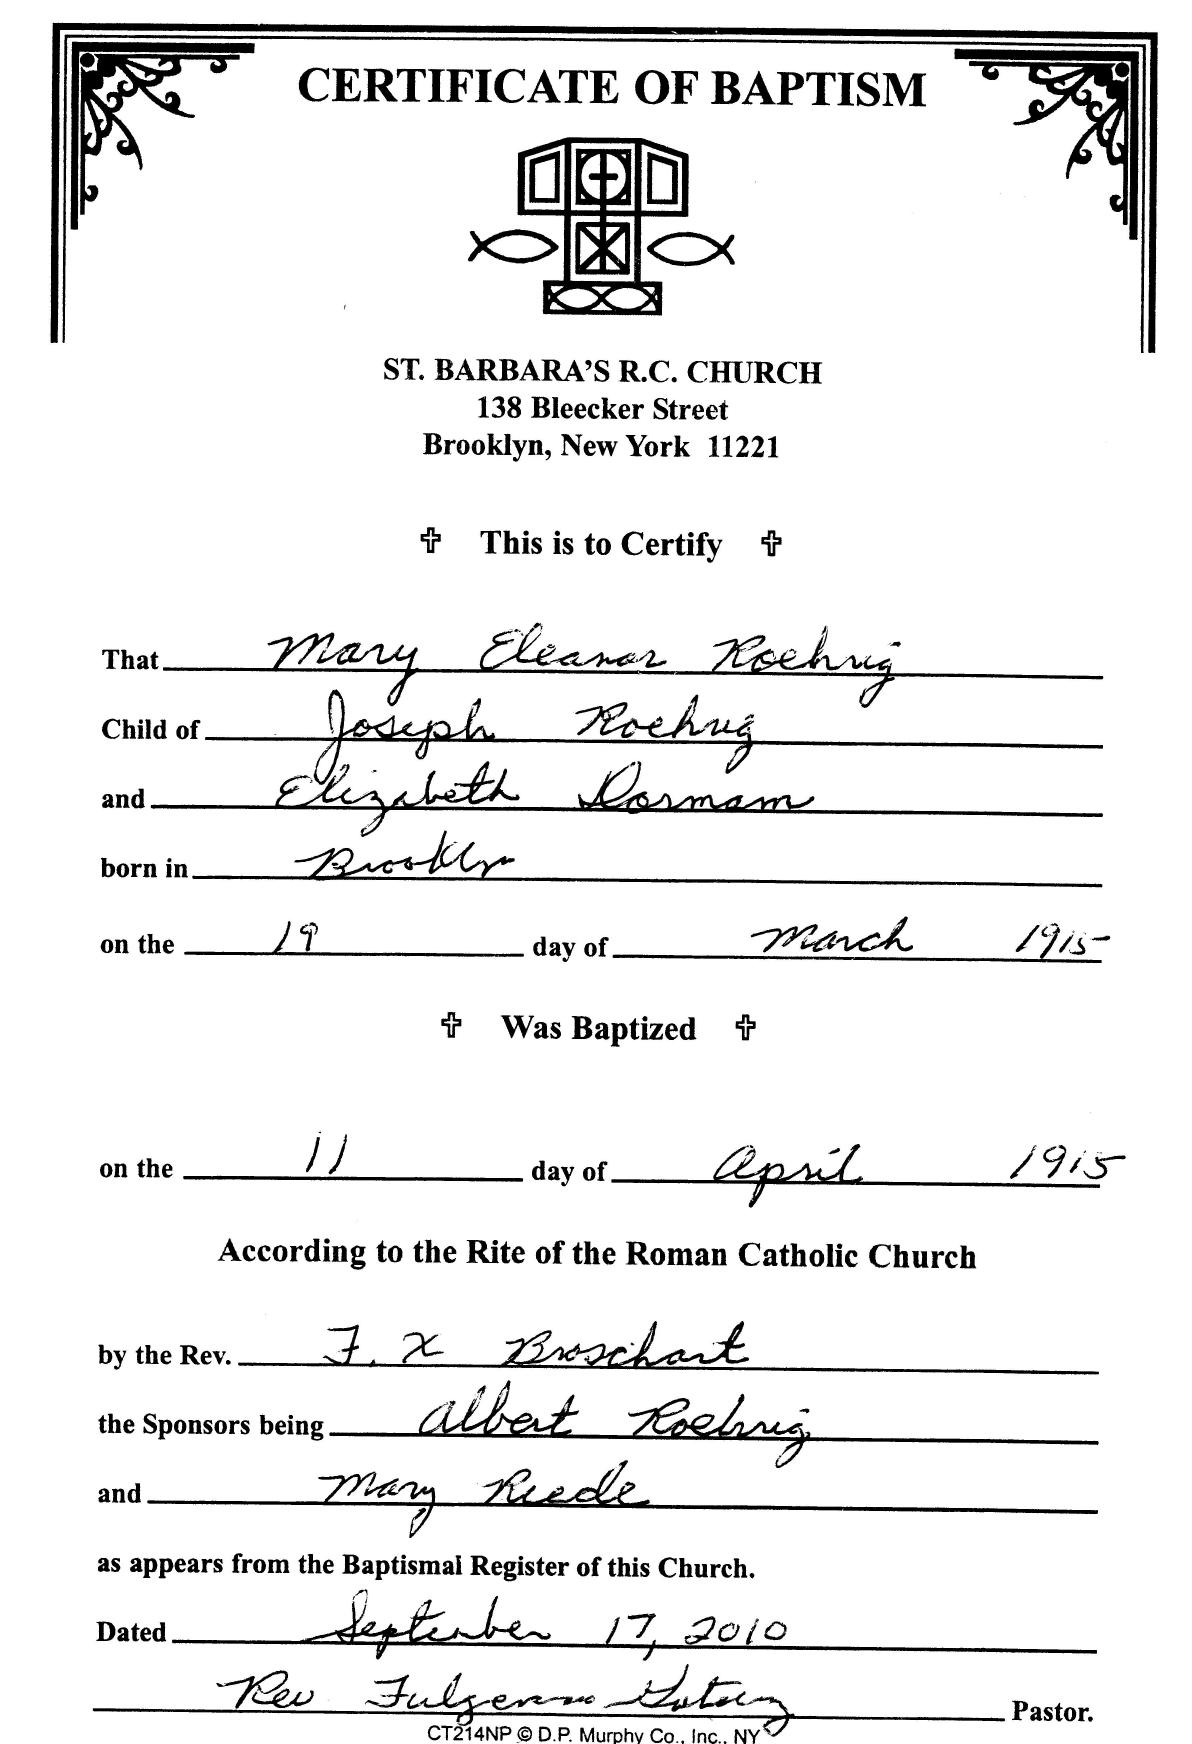 CERTIFICATE OF BAPTISM
ST. BARBARA'S R.C. CHURCH
138 Bleecker Street
Brooklyn, New York 11221
✞ This is to Certify ✞
That Mary Eleanor Roehrig
Child of Joseph Roehrig
and Elizabeth Dormam
born in Brooklyn
on the 19 day of March 1915
✞ Was Baptized ✞
on the 11 day of April 1915
According to the Rite of the Roman Catholic Church
by the Rev. F. X Broschart
the Sponsors being Albert Roehrig
and Mary Reede
as appears from the Baptismal Register of this Church.
Dated September 17, 2010
Rev Pastor.
CT214NP © D.P. Murphy Co., Inc., NY